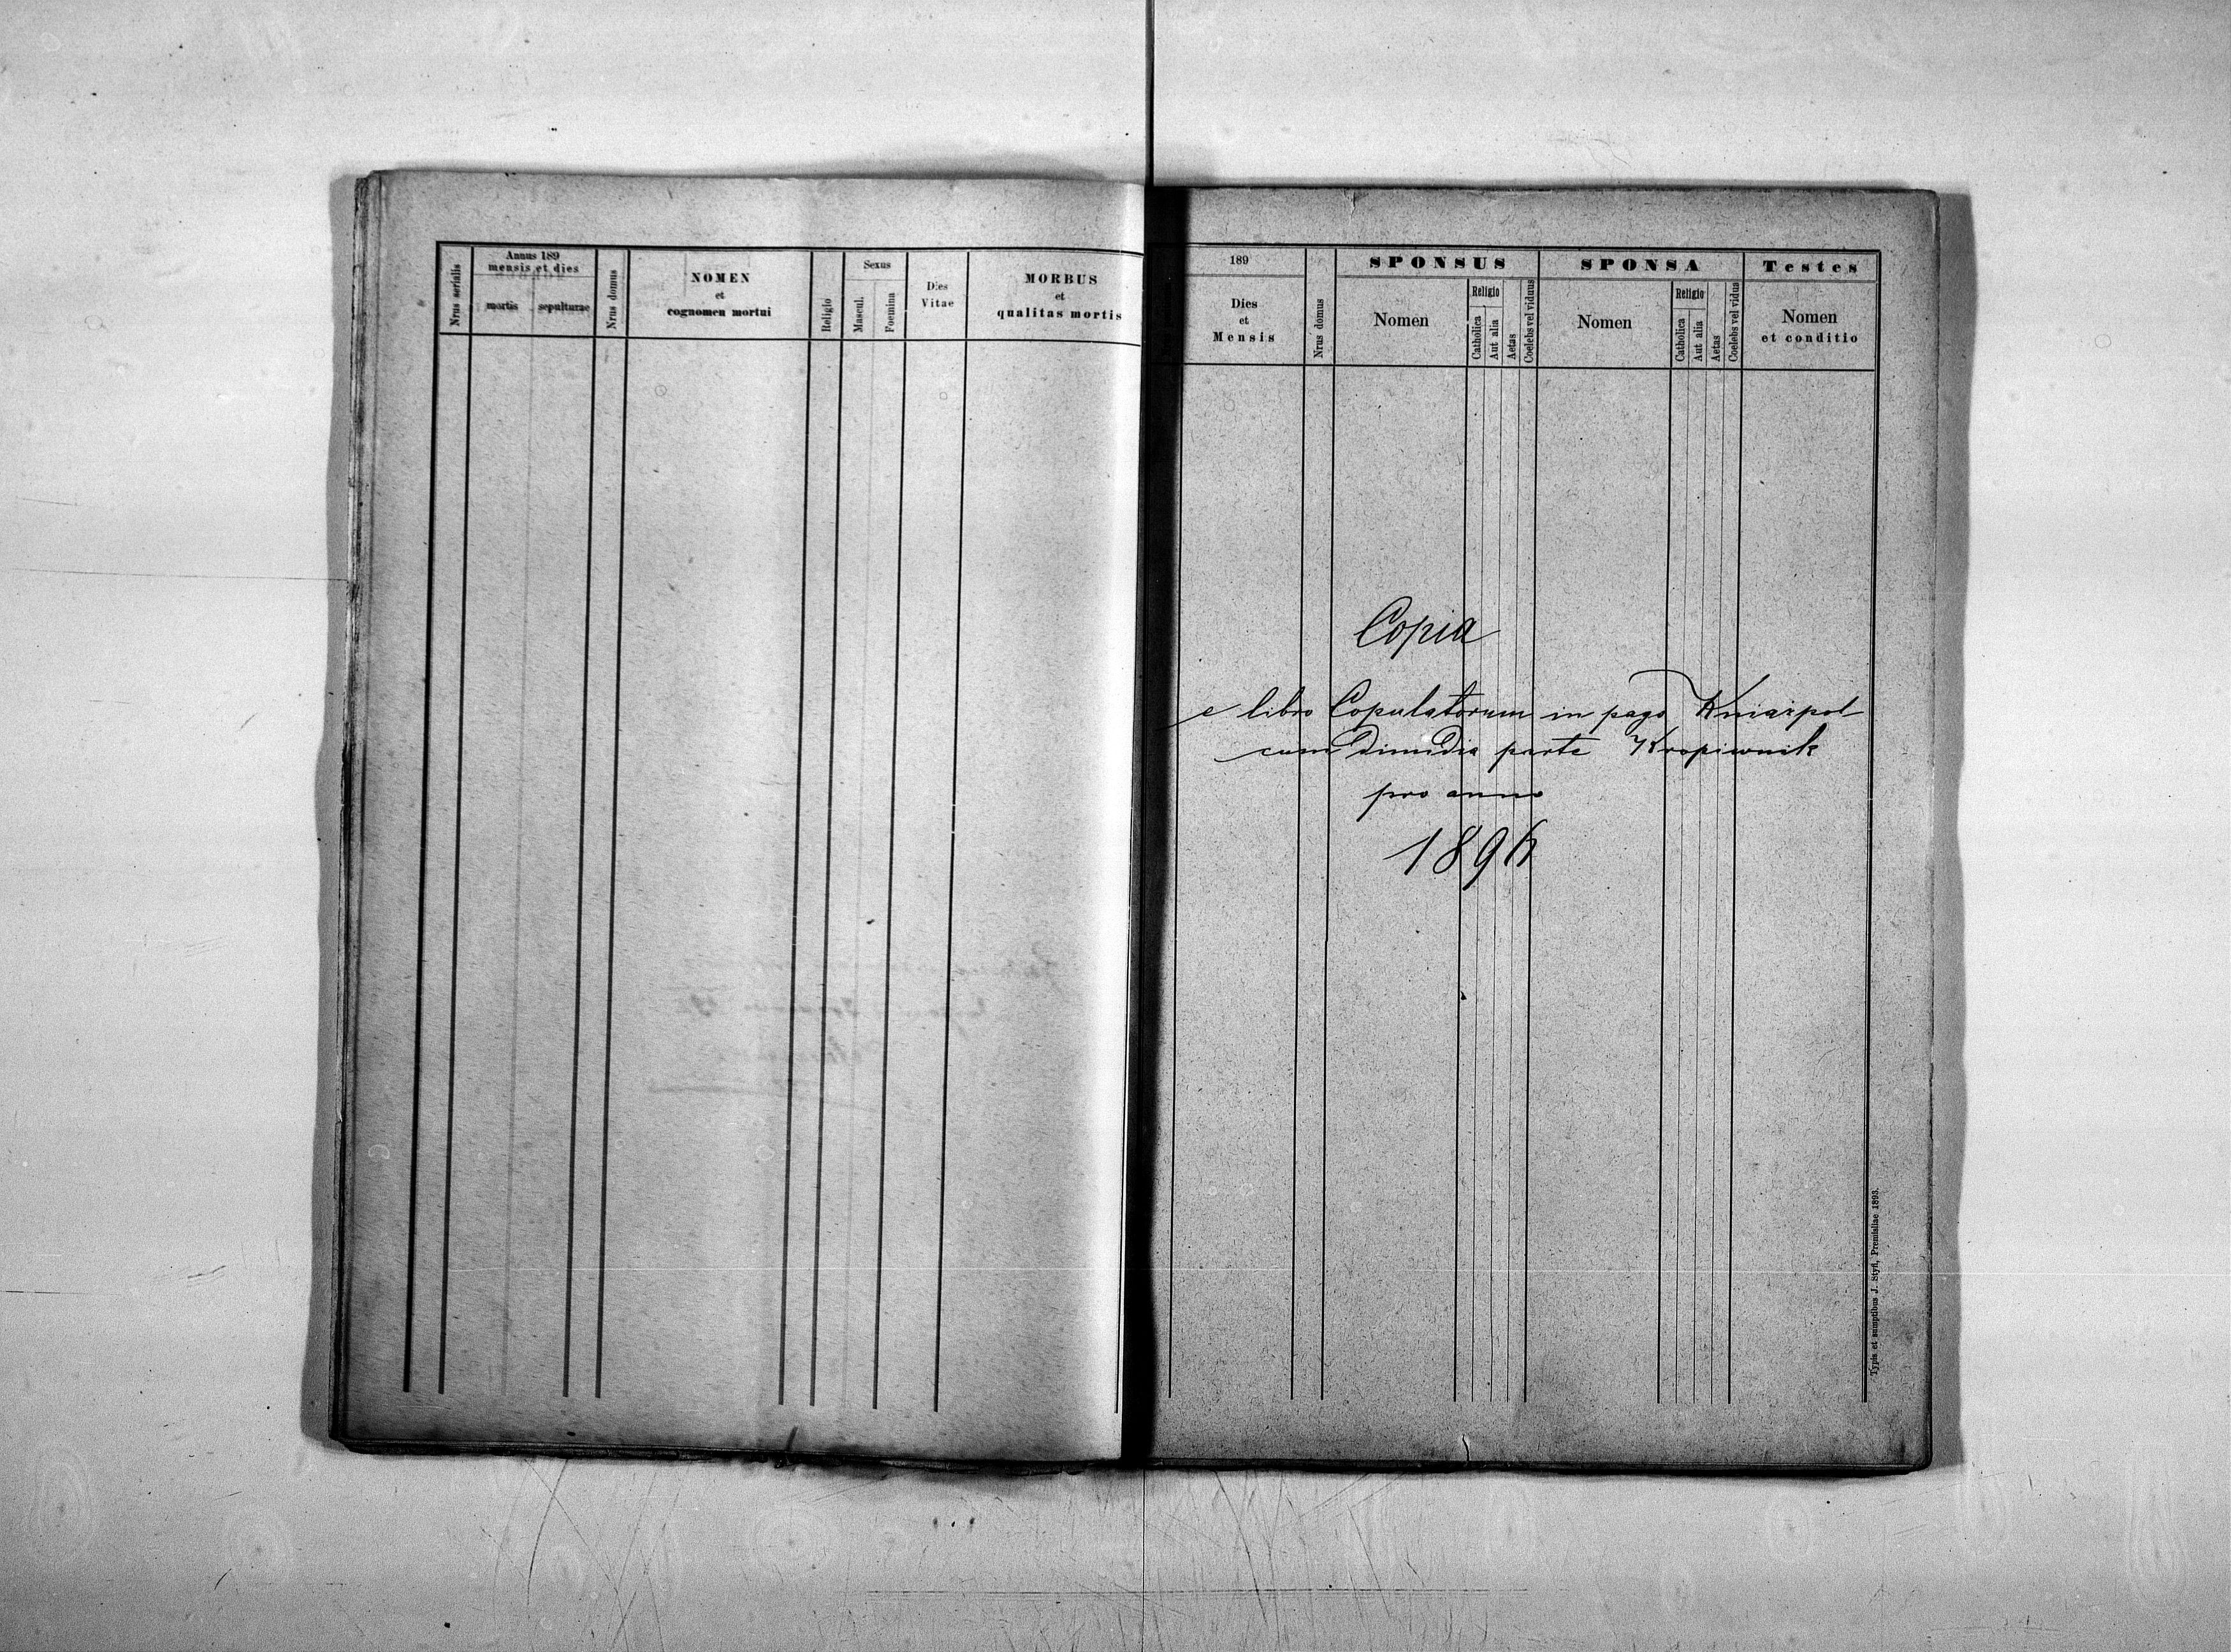 Nrus serialis
Annus 189
mensis et dies
mortis
sepulturae
Nrus domus
NOMEN
et
cognomen mortui
Religio
Sexus
Mascul.
Foemina
Dies
Vitae
MORBUS
et
qualitas mortis
189
Dies
et
Mensis
Nrus domus
SPONSUS
Nomen
Religio
Catholica
Aut alia
Aetas
Coelebs vel viduus
SPONSA
Nomen
Religio
Catholica
Aut alia
Aetas
Coelebs vel vidua
Testes
Nomen
et conditio
Copia
e libro Copulatorum in pago Kniażpol
cum dimidia parte Kropiwnik
pro anno
189
Typis et sumptibus J. Styfi, Premisliae 1893.